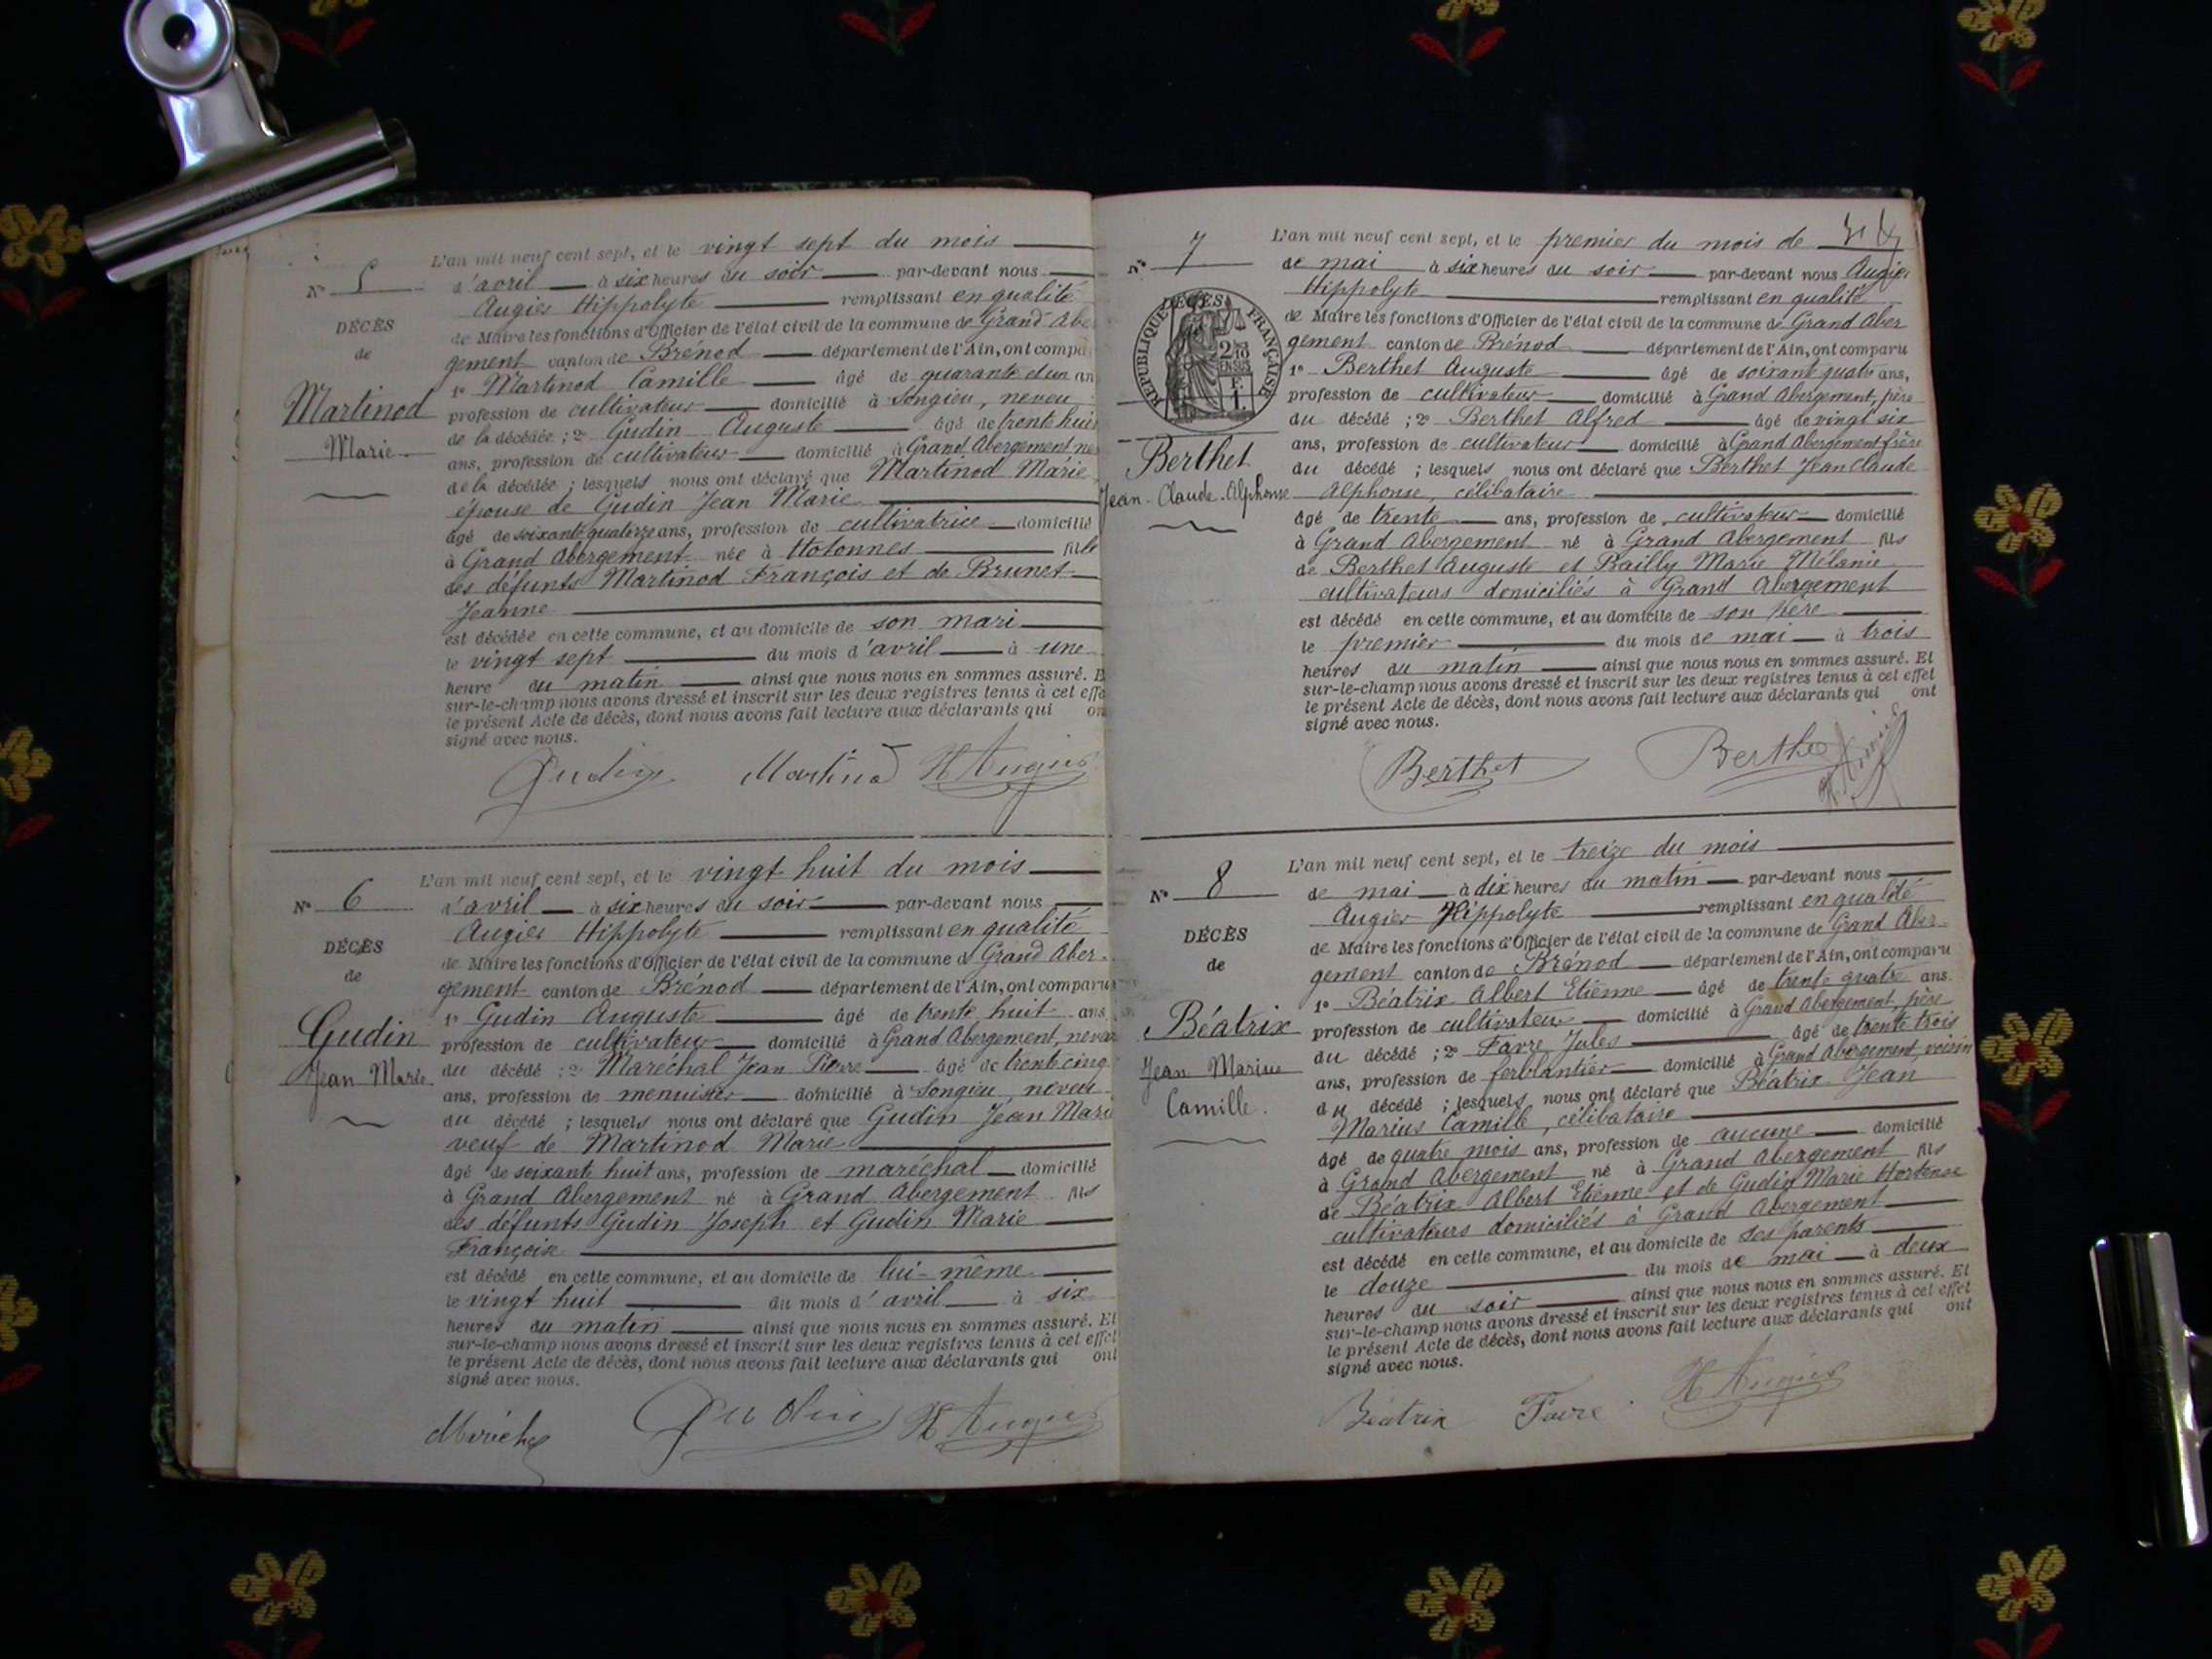 N° 5
DÉCÈS
de
Martinod
Marie
L'an mil neuf cent sept, et le vingt sept du mois
d'avril à six heures du soir par-devant nous
Augier Hippolyte remplissant en qualité
de Maire les fonctions d'Officier de l'état civil de la commune de Grand Aber
gement canton de Brénod département de l'Ain, ont compa
1° Martinod Camille âgé de quarante et un an
profession de cultivateur domicilié à Songieu, neveu
de la décédée ; 2° Gudin Auguste âgé de trente huit
ans, profession de cultivateur domicilié à Grand Abergement ne
de la décédée ; lesquels nous ont déclaré que Martinod Marie
épouse de Gudin Jean Marie
âgé de soixante quatorze ans, profession de cultivatrice domicilié
à Grand Abergement née à Hotonnes fille
des défunts Martinod François et de Brunet
Jeanne
est décédée en cette commune, et au domicile de son mari
le vingt sept du mois d'avril à une
heure du matin ainsi que nous nous en sommes assuré. E
sur-le-champ nous avons dressé et inscrit sur les deux registres tenus à cet effe
le présent Acte de décès, dont nous avons fait lecture aux déclarants qui on
signé avec nous.
Gudin Martinod H Augier
N° 6
DÉCÈS
de
Gudin
Jean Marie
L'an mil neuf cent sept, et le vingt huit du mois
d'avril à six heures du soir par-devant nous
Augier Hippolyte remplissant en qualité
de Maire les fonctions d'Officier de l'état civil de la commune de Grand Aber-
gement canton de Brénod département de l'Ain, ont comparu
1° Gudin Auguste âgé de trente huit ans
profession de cultivateur domicilié à Grand Abergement, neveu
du décédé ; 2° Maréchal Jean Pierre âgé de trente cinq
ans, profession de menuisier domicilié à Songieu, neveu
du décédé ; lesquels nous ont déclaré que Gudin Jean Marie
veuf de Martinod Marie
âgé de soixante huit ans, profession de maréchal domicilié
à Grand Abergement né à Grand Abergement fils
des défunts Gudin Joseph et Gudin Marie
Françoise
est décédé en cette commune, et au domicile de lui-même
le vingt huit du mois d'avril à six
heures du matin ainsi que nous nous en sommes assuré. Et
sur-le-champ nous avons dressé et inscrit sur les deux registres tenus à cet effet
le présent Acte de décès, dont nous avons fait lecture aux déclarants qui ont
signé avec nous.
Maréchal Gudin H Augier
N° 7
RÉPUBLIQUE FRANÇAISE
DÉCÈS
2/10 EN SUS
1 F.
Berthet
Jean-Claude-Alphonse
L'an mil neuf cent sept, et le premier du mois de
de mai à six heures du soir par-devant nous Augier
Hippolyte remplissant en qualité
de Maire les fonctions d'Officier de l'état civil de la commune de Grand Aber
gement canton de Brénod département de l'Ain, ont comparu
1° Berthet Auguste âgé de soixante quatre ans,
profession de cultivateur domicilié à Grand Abergement, père
du décédé ; 2° Berthet Alfred âgé de vingt six
ans, profession de cultivateur domicilié à Grand Abergement frère
du décédé ; lesquels nous ont déclaré que Berthet Jean Claude
Alphonse, célibataire
âgé de trente ans, profession de cultivateur domicilié
à Grand Abergement né à Grand Abergement fils
de Berthet Auguste et Bailly Marie Mélanie
cultivateurs domiciliés à Grand Abergement
est décédé en cette commune, et au domicile de son père
le premier du mois de mai à trois
heures du matin ainsi que nous nous en sommes assuré. Et
sur-le-champ nous avons dressé et inscrit sur les deux registres tenus à cet effet
le présent Acte de décès, dont nous avons fait lecture aux déclarants qui ont
signé avec nous.
Berthet Berthet H. Augier
N° 8
DÉCÈS
de
Béatrix
Jean Marius
Camille.
L'an mil neuf cent sept, et le treize du mois
de mai à dix heures du matin par-devant nous
Augier Hippolyte remplissant en qualité
de Maire les fonctions d'Officier de l'état civil de la commune de Grand Aber-
gement canton de Brénod département de l'Ain, ont comparu
1° Béatrix Albert Etienne âgé de trente quatre ans.
profession de cultivateur domicilié à Grand Abergement, père
du décédé ; 2° Favre Jules âgé de trente trois
ans, profession de ferblantier domicilié à Grand Abergement, voisin
du décédé ; lesquels nous ont déclaré que Béatrix Jean
Marius Camille, célibataire
âgé de quatre mois ans, profession de aucune domicilié
à Grand Abergement né à Grand Abergement fils
de Béatrix Albert Etienne et de Gudin Marie Hortense
cultivateurs domiciliés à Grand Abergement
est décédé en cette commune, et au domicile de ses parents
le douze du mois de mai à deux
heures du soir ainsi que nous nous en sommes assuré. Et
sur-le-champ nous avons dressé et inscrit sur les deux registres tenus à cet effet
le présent Acte de décès, dont nous avons fait lecture aux déclarants qui ont
signé avec nous.
Béatrix Favre H Augier